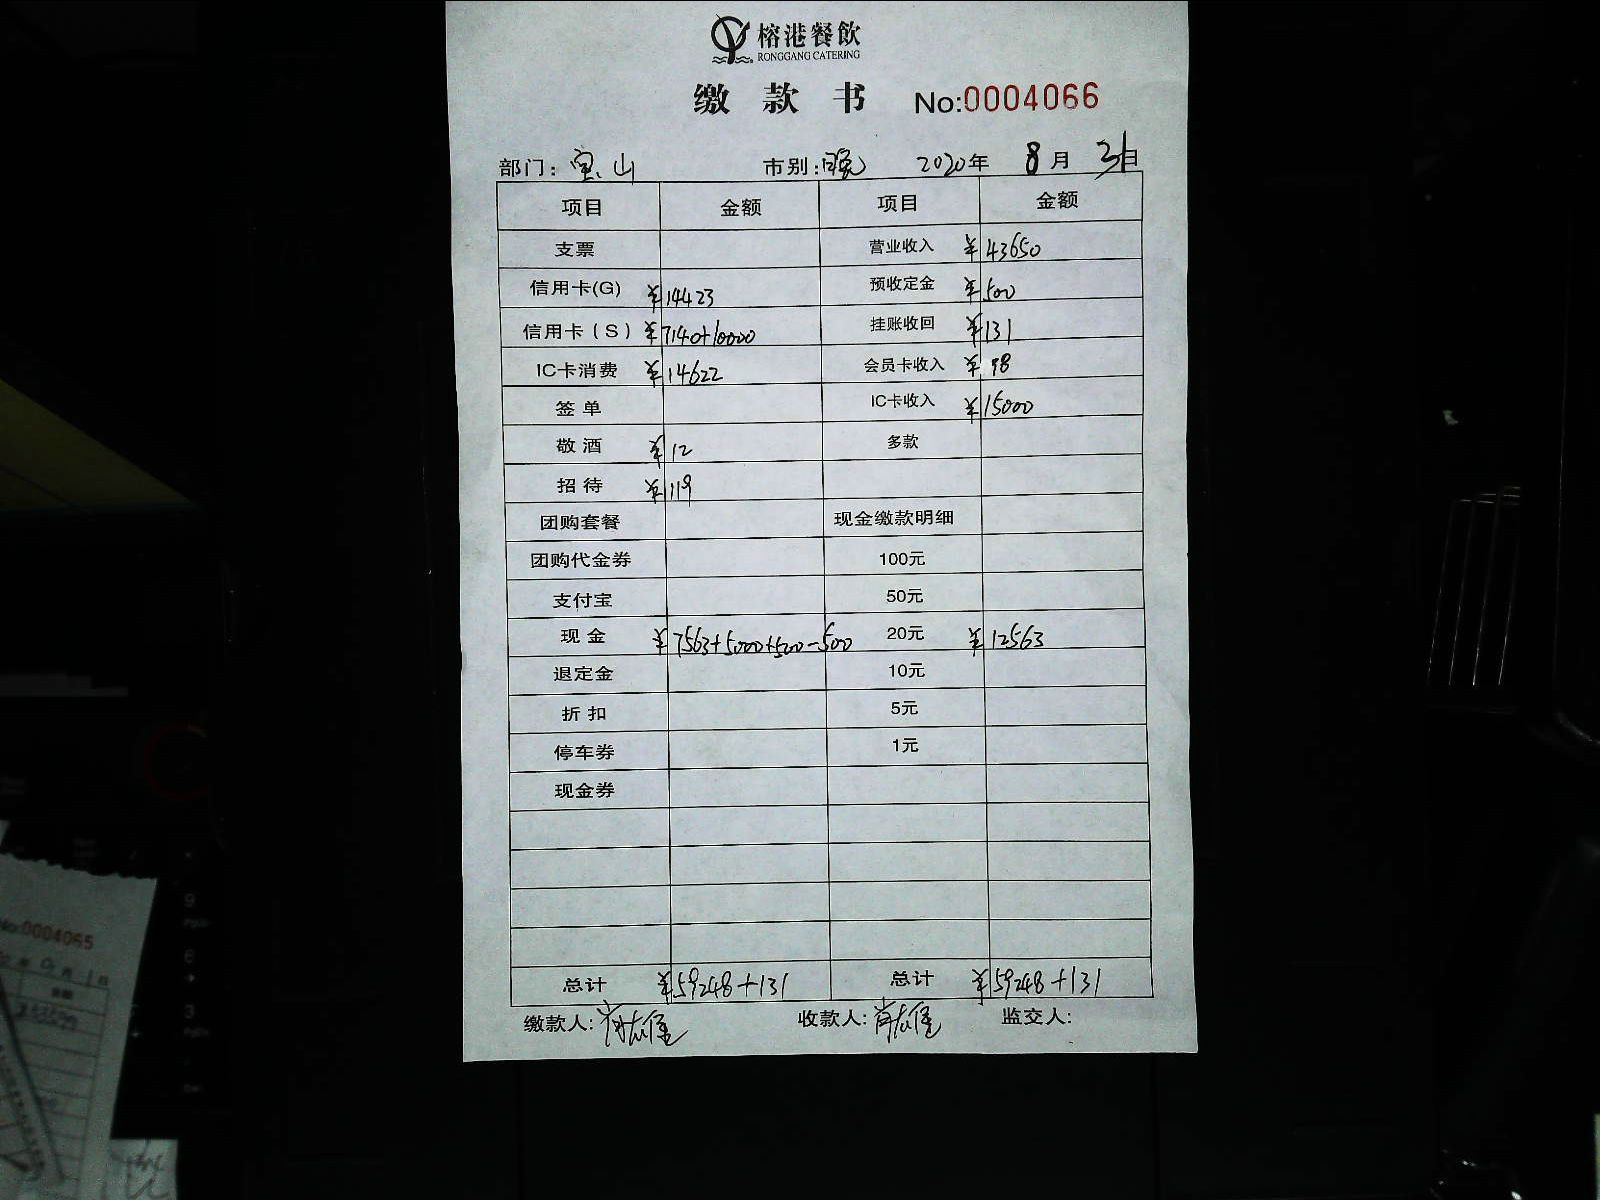 榕港餐飲
RONGGANG CATERING
缴款书 No:0004066
部门：宝山 市别：晚 2020年 8月 31日
项目 金额 项目 金额
支票 营业收入 ¥43650
信用卡(G) ¥14423 预收定金 ¥500
信用卡（S） ¥7140+10000 挂账收回 ¥131
IC卡消费 ¥14622 会员卡收入 ¥98
签单 IC卡收入 ¥15000
敬酒 ¥12 多款
招待 ¥119
团购套餐 现金缴款明细
团购代金券 100元
支付宝 50元
现金 ¥7563+5000+500-500 20元 ¥12563
退定金 10元
折扣 5元
停车券 1元
现金券
总计 ¥59248+131 总计 ¥59248+131
缴款人: 收款人: 监交人:
No:0004065